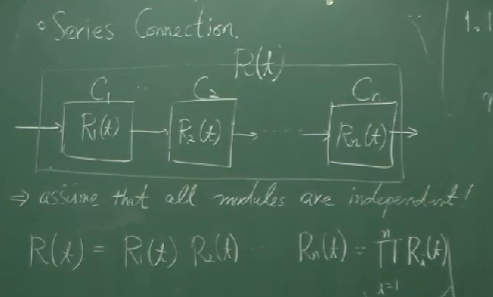 ∘ Series Connection.
R(t)
C₁ C₂ Cn
R₁(t) R₂(t) ...... Rn(t)
⇒ assume that all modules are independent!
R(t) = R₁(t) R₂(t) ... Rn(t) = ∏ⁿᵢ₌₁ Rᵢ(t)